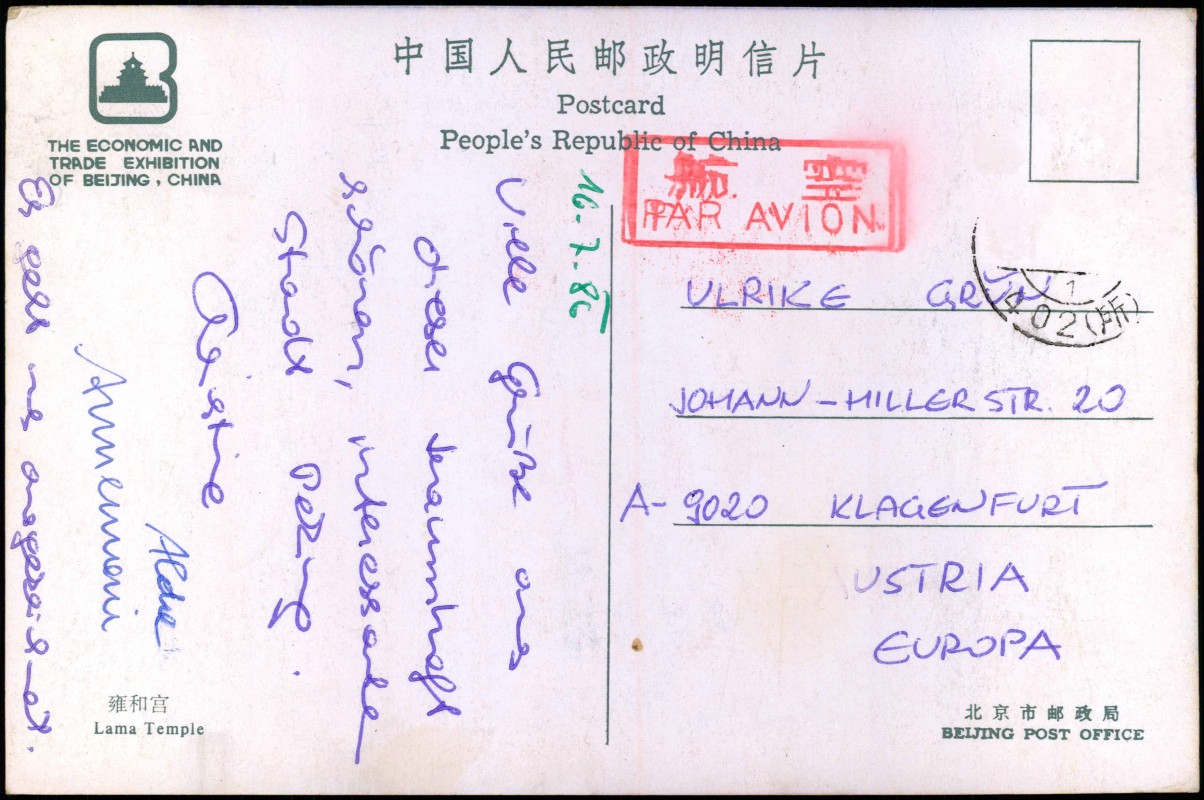 中国人民邮政明信片
Postcard
People's Republic of China
THE ECONOMIC AND
TRADE EXHIBITION
OF BEIJING, CHINA
航空
PAR AVION
16-7-86
Viele Grüße aus
dieser traumhaft
schönen, interessanten
Stadt Peking.
Christine
Annemarie
Es geht uns ausgezeichnet.
ULRIKE GRÜN
JOHANN-HILLERSTR. 20
A-9020 KLAGENFURT
USTRIA
EUROPA
1
402(所)
雍和宫
Lama Temple
北京市邮政局
BEIJING POST OFFICE